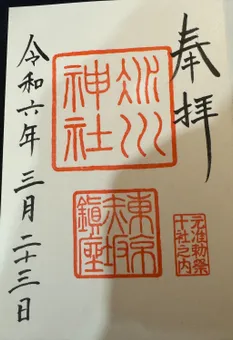 奉拝
元准勅祭
十社之内
氷川
神社
東京
赤坂
鎮座
令和六年 三月 二十三日